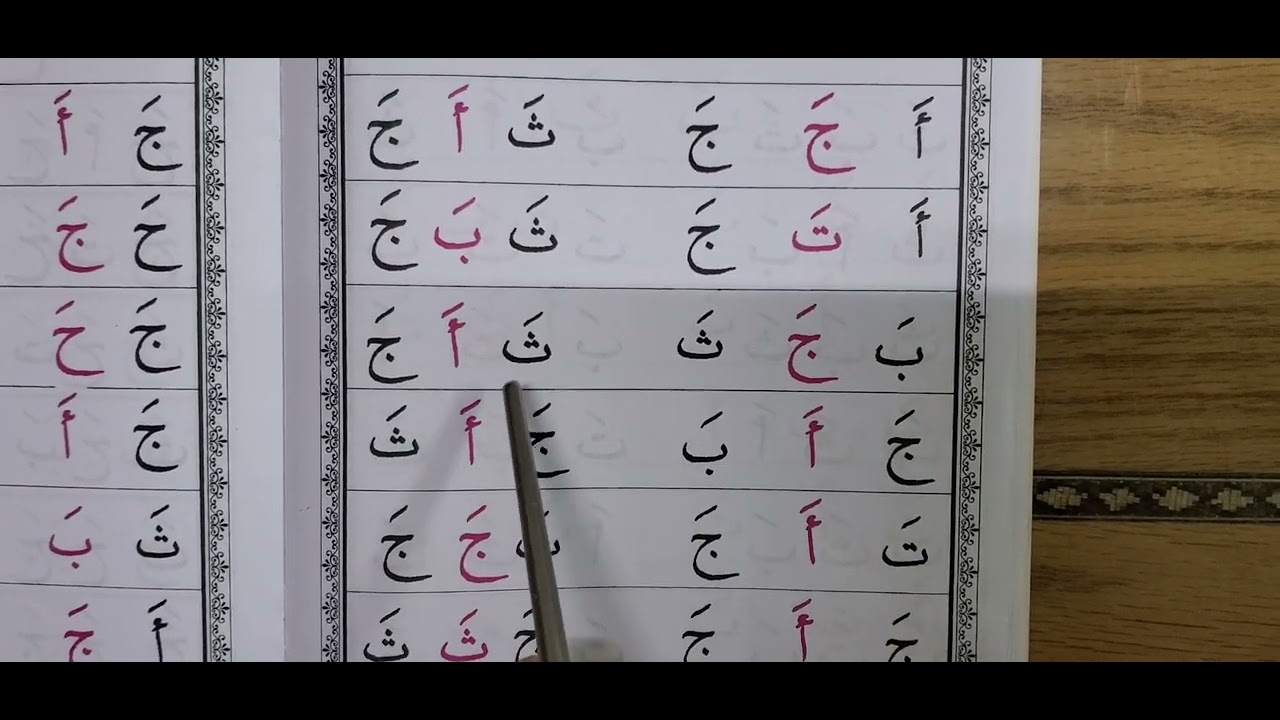 أَ جَ جَ ثَ أَ جَ
أَ تَ جَ ثَ بَ جَ
بَ جَ ثَ ثَ أَ جَ
جَ أَ بَ جَ أَ ثَ
تَ أَ جَ جَ جَ
جَ أَ جَ ثَ ثَ
جَ أَ
حَ جَ
جَ حَ
جَ أَ
ثَ بَ
أَ جَ